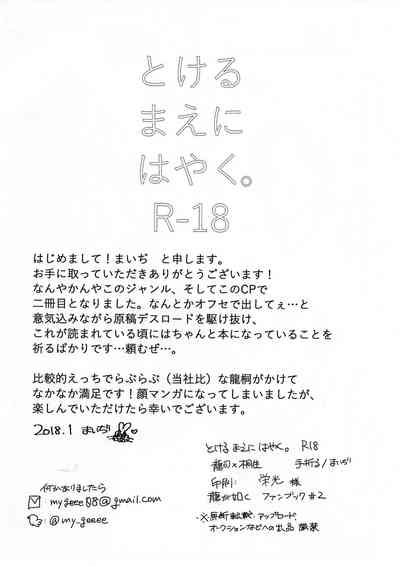 とける
まえに
はやく。
R-18
はじめまして！まいぢ　と申します。
お手に取っていただきありがとうございます！
なんやかんやこのジャンル、そしてこのCPで
二冊目となりました。なんとかオフセで出してぇ…と
意気込みながら原稿デスロードを駆け抜け、
これが読まれている頃にはちゃんと本になっていることを
祈るばかりです…頼むぜ…。
比較的えっちでらぶらぶ（当社比）な龍桐がかけて
なかなか満足です！顔マンガになってしまいましたが、
楽しんでいただけたら幸いでございます。
2018.1 まいぢ
何かありましたら
mygeee08@gmail.com
@my_geeee
とけるまえにはやく。 R18
龍司×桐生 / まいぢ
印刷: 栄光 様
龍が如く ファンブック #2
※無断転載、アップロード、
オークションなどへの出品 厳禁